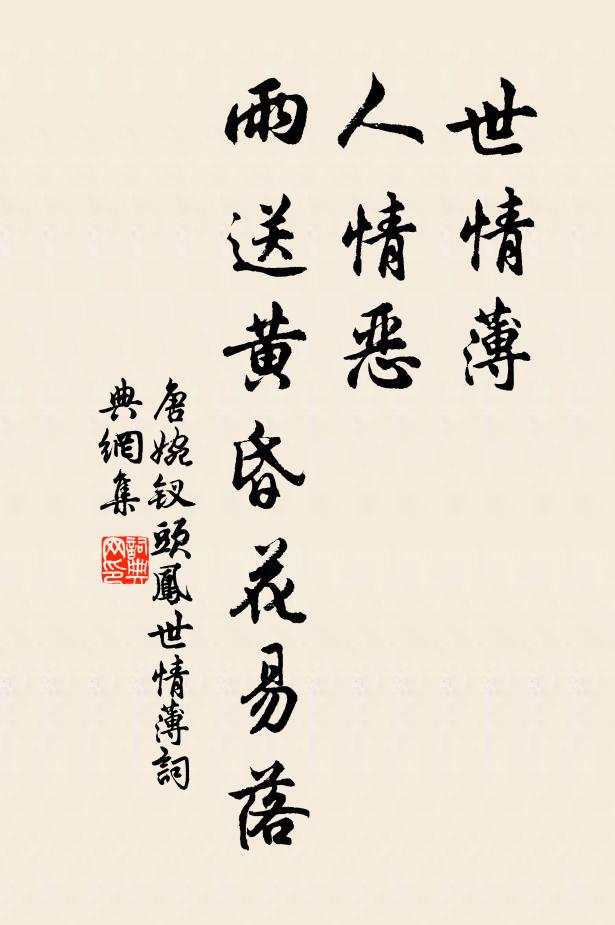 世情薄
人情惡
雨送黃昏花易落
唐婉釵頭鳳世情薄詞
典網集
詞典
网印